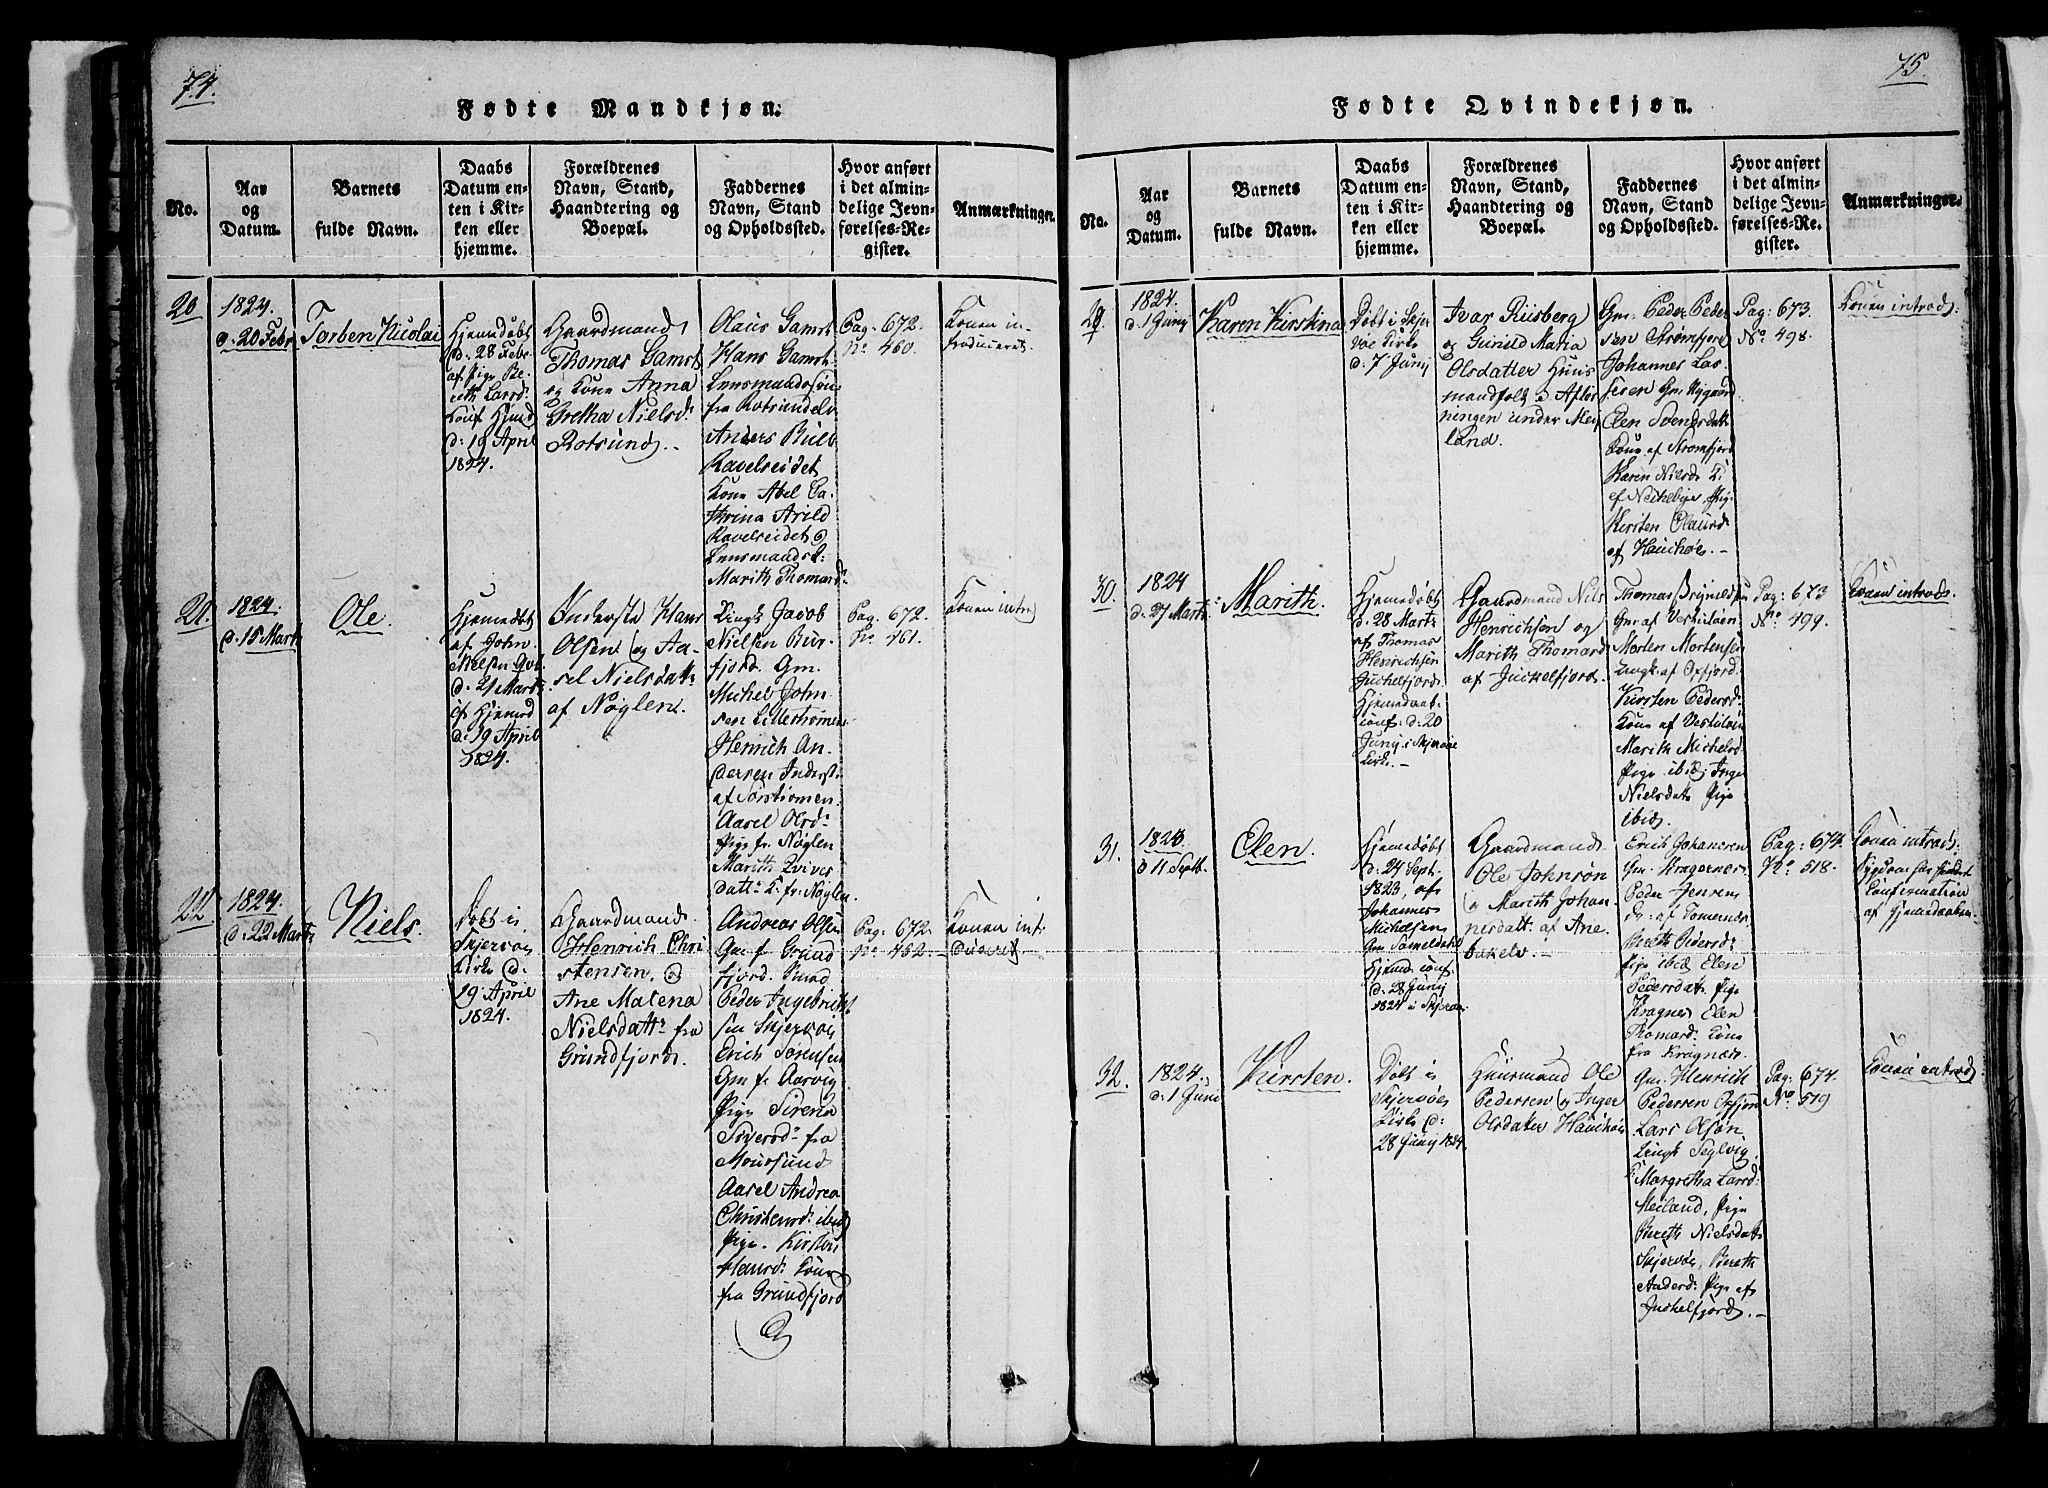 74.
Fødte Mandkjøn.
No.
Aar
og
Datum.
Barnets
fulde Navn.
Daabs
Datum en-
ten i Kir-
ken eller
hjemme.
Forældrenes
Navn, Stand,
Haandtering og
Boepæl.
Faddernes
Navn, Stand
og Opholdssted.
Hvor anført
i det almin-
delige Jevn-
førelses-Re-
gister.
Anmærkninger.
20
1824.
d. 20 Febr
Torben Nicolai
Hjemdøbt
d. 28 Febr
af Pige Be-
reth Larsd:
Conf. Hjemd
d: 19 April
1824.
Gaardmand
Thomas Gamst
og Kone Anna
Gretha Nielsd:
Rotsund.-
Olaus Gamst
Hans Gamst
Lensmandssøn
fra Rotsundelv
Anders Bull
Ravelseidet
Kone Abel Ca-
thrina Arild
Ravelseidet
Lensmandsk:
Marith Thomasd:
Pag: 672.
No. 460.
Konen in-
troduceret
1824.
d. 15 Marti
Ole
Hjemdøbt
af John
Nielsen
d. 21 Marti
d. 19 April
1824.
Inderste Hans
Olsen og Aa-
sel Nielsdatt:
af Nøglen.
Jacob
Nielsen Bur-
fjord. Gm.
Michel John-
sen Lillestrømen
Henrich An-
dersen Inderst
af Sørstrømen.
Aasel Olsd:
Pige fr. Nøglen
Marith Sivers
datt: K. fr. Nøglen.
Pag: 672.
No. 461.
Konen introd
22
1824.
d. 22 Marti
Niels.
Døbt i
Skjervøe
Kirke d.
19 April
1824.
Gaardmand
Henrich Chri-
stensen, og
Ane Malena
Nielsdatt: fra
Grundfjord.
Andreas Olsen
Gm fr Grund
fjord.
Peder Ingebrigt
sen Skjervøe
Erich Sørensen
Gm fr Aarvig
Pige Sirena
Siversd: fra
Moursund
Aasel Andrea
Christensd: ibid
Pige. Kirsten
Hansd: Kone
fra Grundfjord
Pag: 672.
No. 462.-
Konen int-
75.
Fødte Qvindekjøn.
No.
Aar
og
Datum.
Barnets
fulde Navn.
Daabs
Datum en-
ten i Kir-
ken eller
hjemme.
Forældrenes
Navn, Stand,
Haandtering og
Boepæl.
Faddernes
Navn, Stand
og Opholdssted.
Hvor anført
i det almin-
delige Jevn-
førelses-Re-
gister.
Anmærkninger.
29
1824.
d. 1 Junij
Karen Kirstina
Døbt i Skjer
vøe Kirke
d. 7 Junij
Ivar Riisberg
og Gunild Maria
Olsdatter Huus
mandfolk i Aflør
ningen under Mei
land.
Gm: Peder Peder
sen Strømfjord
Johannes Las-
sesen Gm Nygaard
Elen Svendsdatt:
Kone af Strømfjord
Karen Nielsd: K:
Pige
Kirsten Olausd:
af Hauchøe.-
Pag: 673.
No. 498.
Konen introd:
30.
1824
d. 27 Marti
Marith.
Hjemmedøbt
d. 28 Marti
af Thomas
Henrichsen
Juckelfjord.
Hjemmedaab
conf: d: 20
Junij i Skjervøe
Kirke.-
Gaardmand Nils
Henrichsen og
Marith Thomasd
af Juckelfjord.
Thomas Brynildsen
Gm: af
Morten Mortensen
Ungk. af Oxfjord.
Kirsten Pedersd:
Kone af
Marith Michelsd
Pige ibid, Inge
Nielsdatt: Pige
ibid.
Pag: 673
No. 499.
Konen introd:
31.
1823
d 11 Septb.
Elen.
Hjemmedøbt
d. 24 Sept.
1823, af
Johannes
Michelsen
Gm
Hjemd conf.
d. 28 Junij
1824 i Skjervøe
Gaardmand
Ole Johnsøn
og Marith Johan-
nesdatt: af Ane-
bakelv.-
Erich Johansen
Gm: Kragernes
Peder Jensen
d: af
Bereth Pedersd:
Pige ibid Elen
Pedersdatt: Pige
Kragnes Elen
Thomasd: Kone
fra Kragnæs.
Pag: 674.
No. 518.
Konen introd:
Confirmation
af Hjemmedaaben.
32.
1824.
d: 1 Juni
Kirsten.
Døbt i
Skjervøe
Kirke d:
28 Junij 1824.
Huusmand Ole
Pedersen og Inger
Olsdatter Hauchøe
Gm: Henrich
Pedersen Oxfjord
Lars Olsøn,
Ungk Seglvig.
Margretha Larsd:
Meiland, Pige
Bereth Nielsdatt:
Skjervøe, Bereth
Andersd: Pige af
Juckelfjord.-
Pag: 674.
No. 519
Konen introd: